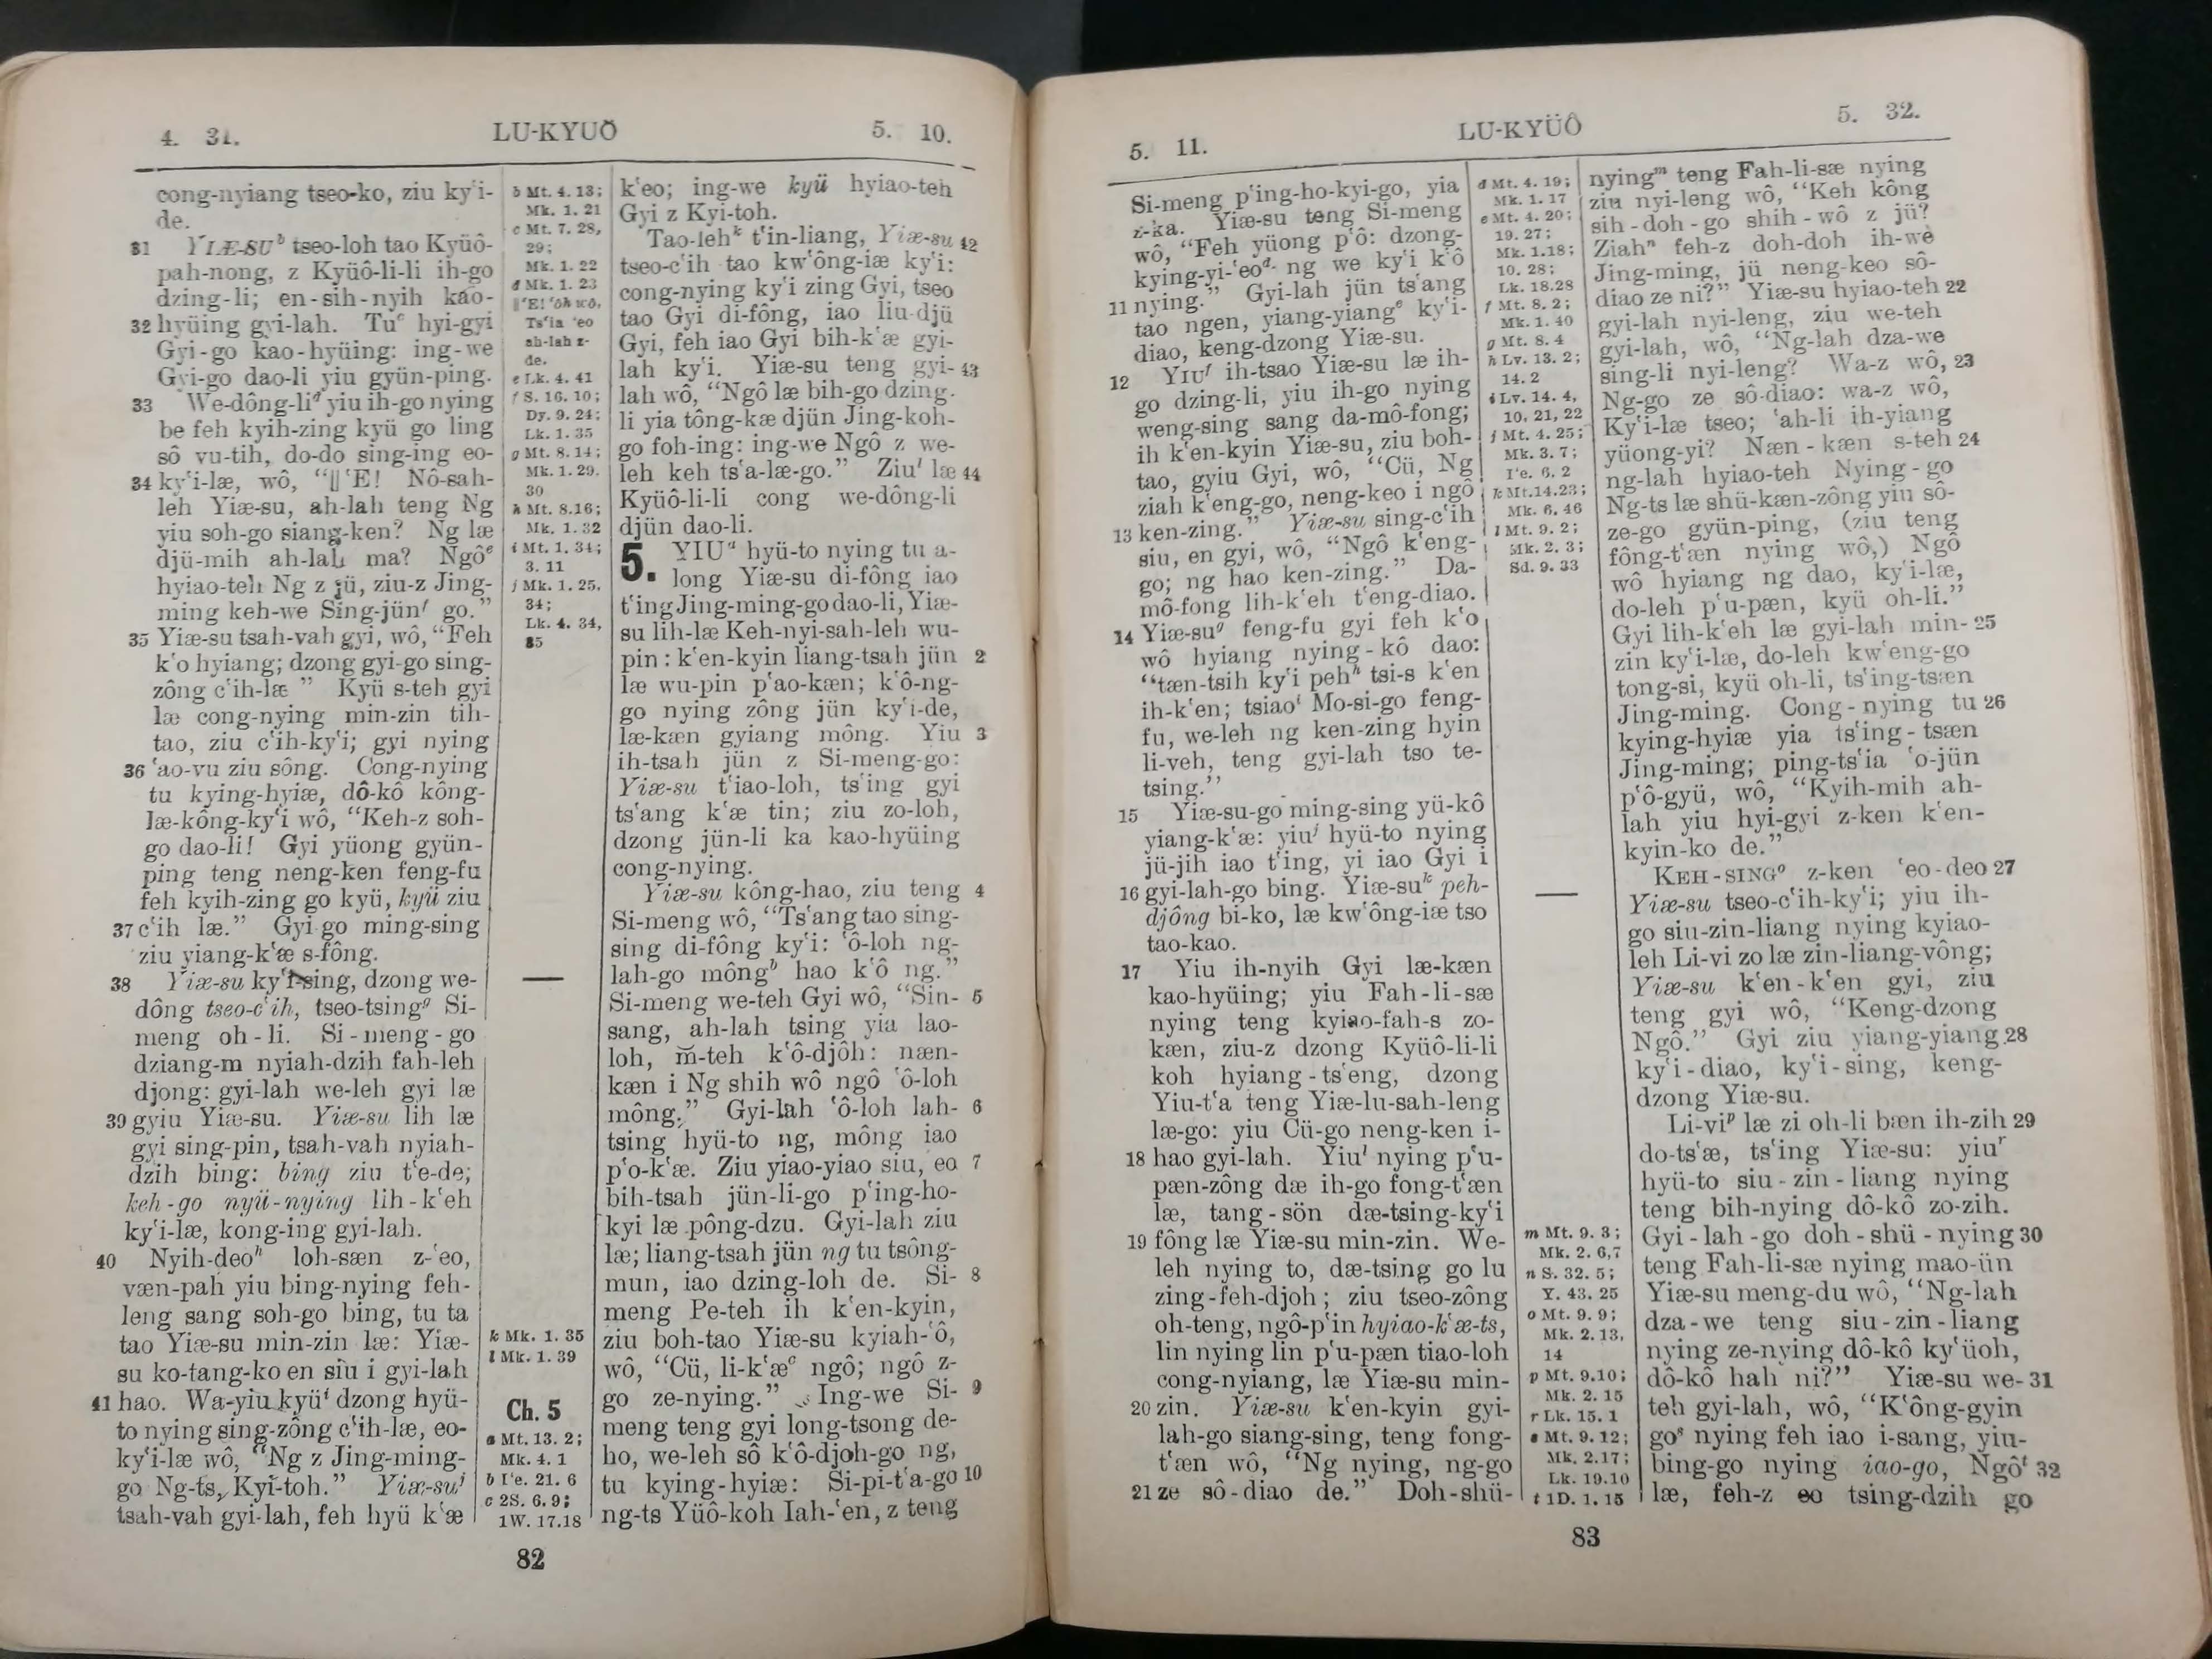 4. 31.
LU-KYUÔ
5. 10.
cong-nyiang tseo-ko, ziu ky‘i-
de.
31 YIÆ-SUᵇ tseo-loh tao Kyüô-
pah-nong, z Kyüô-li-li ih-go
dzing-li; en-sih-nyih kao-
32 hyüing gyi-lah. Tuᶜ hyi-gyi
Gyi-go kao-hyüing: ing-we
Gyi-go dao-li yiu gyün-ping.
33 We-dông-liᵈ yiu ih-go nying
be feh kyih-zing kyü go ling
sô vu-tih, do-do sing-ing eo-
34 ky‘i-læ, wô, “‖‘E! Nô-sah-
leh Yiæ-su, ah-lah teng Ng
yiu soh-go siang-ken? Ng læ
djü-mih ah-lah ma? Ngôᵉ
hyiao-teh Ng z jü, ziu-z Jing-
ming keh-we Sing-jünᶠ go.”
35 Yiæ-su tsah-vah gyi, wô, “Feh
k‘o hyiang; dzong gyi-go sing-
zông c‘ih-læ ” Kyü s-teh gyi
læ cong-nying min-zin tih-
tao, ziu c‘ih-ky‘i; gyi nying
36 ‘ao-vu ziu sông. Cong-nying
tu kying-hyiæ, dô-kô kông-
læ-kông-ky‘i wô, “Keh-z soh-
go dao-li! Gyi yüong gyün-
ping teng neng-ken feng-fu
feh kyih-zing go kyü, kyü ziu
37 c‘ih læ.” Gyi-go ming-sing
ziu yiang-k‘æ s-fông.
38 Yiæ-su ky‘i-sing, dzong we-
dông tseo-c‘ih, tseo-tsingᵍ Si-
meng oh-li. Si-meng-go
dziang-m nyiah-dzih fah-leh
djong: gyi-lah we-leh gyi læ
39 gyiu Yiæ-su. Yiæ-su lih læ
gyi sing-pin, tsah-vah nyiah-
dzih bing: bing ziu t‘e-de;
keh-go nyü-nying lih-k‘eh
ky‘i-læ, kong-ing gyi-lah.
40 Nyih-deoʰ loh-sæn z-‘eo,
væn-pah yiu bing-nying feh-
leng sang soh-go bing, tu ta
tao Yiæ-su min-zin læ: Yiæ-
su ko-tang-ko en siu i gyi-lah
41 hao. Wa-yiu kyüⁱ dzong hyü-
to nying sing-zông c‘ih-læ, eo-
ky‘i-læ wô, “Ng z Jing-ming-
go Ng-ts, Kyi-toh.” Yiæ-suʲ
tsah-vah gyi-lah, feh hyü k‘æ
b Mt. 4. 13;
Mk. 1. 21
c Mt. 7. 28,
29;
Mk. 1. 22
d Mk. 1. 23
‖‘E! ‘ôh wô,
Ts‘ia ‘eo
ah-lah z-
de.
e Lk. 4. 41
f S. 16. 10;
Dy. 9. 24;
Lk. 1. 35
g Mt. 8. 14;
Mk. 1. 29,
30
h Mt. 8.16;
Mk. 1. 32
i Mt. 1. 34;
3. 11
j Mk. 1. 25,
34;
Lk. 4. 34,
35
k Mk. 1. 35
l Mk. 1. 39
Ch. 5
a Mt. 13. 2;
Mk. 4. 1
b I‘e. 21. 6
c 2S. 6. 9;
1W. 17.18
k‘eo; ing-we kyü hyiao-teh
Gyi z Kyi-toh.
Tao-lehᵏ t‘in-liang, Yiæ-su 42
tseo-c‘ih tao kw‘ông-iæ ky‘i:
cong-nying ky‘i zing Gyi, tseo
tao Gyi di-fông, iao liu-djü
Gyi, feh iao Gyi bih-k‘æ gyi-
lah ky‘i. Yiæ-su teng gyi- 43
lah wô, “Ngô læ bih-go dzing-
li yia tông-kæ djün Jing-koh-
go foh-ing: ing-we Ngô z we-
leh keh ts‘a-læ-go.” Ziuˡ læ 44
Kyüô-li-li cong we-dông-li
djün dao-li.
5. YIUᵃ hyü-to nying tu a-
long Yiæ-su di-fông iao
t‘ing Jing-ming-go dao-li, Yiæ-
su lih-læ Keh-nyi-sah-leh wu-
pin: k‘en-kyin liang-tsah jün 2
læ wu-pin p‘ao-kæn; k‘ô-ng-
go nying zông jün ky‘i-de,
læ-kæn gyiang mông. Yiu 3
ih-tsah jün z Si-meng-go:
Yiæ-su t‘iao-loh, ts‘ing gyi
ts‘ang k‘æ tin; ziu zo-loh,
dzong jün-li ka kao-hyüing
cong-nying.
Yiæ-su kông-hao, ziu teng 4
Si-meng wô, “Ts‘ang tao sing-
sing di-fông ky‘i: ‘ô-loh ng-
lah-go môngᵇ hao k‘ô ng.”
Si-meng we-teh Gyi wô, “Sin- 5
sang, ah-lah tsing yia lao-
loh, m̆-teh k‘ô-djôh: næn-
kæn i Ng shih wô ngô ‘ô-loh
mông.” Gyi-lah ‘ô-loh lah- 6
tsing hyü-to ng, mông iao
p‘o-k‘æ. Ziu yiao-yiao siu, eo 7
bih-tsah jün-li-go p‘ing-ho-
kyi læ pông-dzu. Gyi-lah ziu
læ; liang-tsah jün ng tu tsông-
mun, iao dzing-loh de. Si- 8
meng Pe-teh ih k‘en-kyin,
ziu boh-tao Yiæ-su kyiah-‘ô,
wô, “Cü, li-k‘æᶜ ngô; ngô z-
go ze-nying.” Ing-we Si- 9
meng teng gyi long-tsong de-
ho, we-leh sô k‘ô-djoh-go ng,
tu kying-hyiæ: Si-pi-t‘a-go 10
ng-ts Yüô-koh Iah-‘en, z teng
82
5. 11.
LU-KYÜÔ
5. 32.
Si-meng p‘ing-ho-kyi-go, yia
z-ka. Yiæ-su teng Si-meng
wô, “Feh yüong p‘ô: dzong-
kying-yi-‘eoᵈ ng we ky‘i k‘ô
nying.” Gyi-lah jün ts‘ang
11 tao ngen, yiang-yiangᵉ ky‘i-
diao, keng-dzong Yiæ-su.
12 YIUᶠ ih-tsao Yiæ-su læ ih-
go dzing-li, yiu ih-go nying
weng-sing sang da-mô-fong;
ih k‘en-kyin Yiæ-su, ziu boh-
tao, gyiu Gyi, wô, “Cü, Ng
ziah k‘eng-go, neng-keo i ngô
13 ken-zing.” Yiæ-su sing-c‘ih
siu, en gyi, wô, “Ngô k‘eng-
go; ng hao ken-zing.” Da-
mô-fong lih-k‘eh t‘eng-diao.
14 Yiæ-suᵍ feng-fu gyi feh k‘o
wô hyiang nying-kô dao:
“tæn-tsih ky‘i pehʰ tsi-s k‘en
ih-k‘en; tsiaoⁱ Mo-si-go feng-
fu, we-leh ng ken-zing hyin
li-veh, teng gyi-lah tso te-
tsing.”
15 Yiæ-su-go ming-sing yü-kô
yiang-k‘æ: yiuʲ hyü-to nying
jü-jih iao t‘ing, yi iao Gyi i
16 gyi-lah-go bing. Yiæ-suᵏ peh-
djông bi-ko, læ kw‘ông-iæ tso
tao-kao.
17 Yiu ih-nyih Gyi læ-kæn
kao-hyüing; yiu Fah-li-sæ
nying teng kyiao-fah-s zo-
kæn, ziu-z dzong Kyüô-li-li
koh hyiang-ts‘eng, dzong
Yiu-t‘a teng Yiæ-lu-sah-leng
læ-go: yiu Cü-go neng-ken i-
18 hao gyi-lah. Yiuˡ nying p‘u-
pæn-zông dæ ih-go fong-t‘æn
læ, tang-sön dæ-tsing-ky‘i
19 fông læ Yiæ-su min-zin. We-
leh nying to, dæ-tsing go lu
zing-feh-djoh; ziu tseo-zông
oh-teng, ngô-p‘in hyiao-k‘æ-ts,
lin nying lin p‘u-pæn tiao-loh
cong-nyiang, læ Yiæ-su min-
20 zin. Yiæ-su k‘en-kyin gyi-
lah-go siang-sing, teng fong-
t‘æn wô, “Ng nying, ng-go
21 ze sô-diao de.” Doh-shü-
d Mt. 4. 19;
Mk. 1. 17
e Mt. 4. 20;
19. 27;
Mk. 1.18;
10. 28;
Lk. 18.28
f Mt. 8. 2;
Mk. 1. 40
g Mt. 8. 4
h Lv. 13. 2;
14. 2
i Lv. 14. 4,
10, 21, 22
j Mt. 4. 25;
Mk. 3. 7;
I‘e. 6. 2
k Mt.14.23;
Mk. 6. 46
l Mt. 9. 2;
Mk. 2. 3;
Sd. 9. 33
m Mt. 9. 3;
Mk. 2. 6,7
n S. 32. 5;
Y. 43. 25
o Mt. 9. 9;
Mk. 2. 13,
14
p Mt. 9.10;
Mk. 2. 15
r Lk. 15. 1
s Mt. 9. 12;
Mk. 2.17;
Lk. 19.10
t 1D. 1. 15
nyingᵐ teng Fah-li-sæ nying
ziu nyi-leng wô, “Keh kông
sih-doh-go shih-wô z jü?
Ziahⁿ feh-z doh-doh ih-we
Jing-ming, jü neng-keo sô-
diao ze ni?” Yiæ-su hyiao-teh 22
gyi-lah nyi-leng, ziu we-teh
gyi-lah, wô, “Ng-lah dza-we
sing-li nyi-leng? Wa-z wô, 23
Ng-go ze sô-diao: wa-z wô,
Ky‘i-læ tseo; ‘ah-li ih-yiang
yüong-yi? Næn-kæn s-teh 24
ng-lah hyiao-teh Nying-go
Ng-ts læ shü-kæn-zông yiu sô-
ze-go gyün-ping, (ziu teng
fông-t‘æn nying wô,) Ngô
wô hyiang ng dao, ky‘i-læ,
do-leh p‘u-pæn, kyü oh-li.”
Gyi lih-k‘eh læ gyi-lah min- 25
zin ky‘i-læ, do-leh kw‘eng-go
tong-si, kyü oh-li, ts‘ing-tsæn
Jing-ming. Cong-nying tu 26
kying-hyiæ yia ts‘ing-tsæn
Jing-ming; ping-ts‘ia ‘o-jün
p‘ô-gyü, wô, “Kyih-mih ah-
lah yiu hyi-gyi z-ken k‘en-
kyin-ko de.”
KEH-SINGᵒ z-ken ‘eo-deo 27
Yiæ-su tseo-c‘ih-ky‘i; yiu ih-
go siu-zin-liang nying kyiao-
leh Li-vi zo læ zin-liang-vông;
Yiæ-su k‘en-k‘en gyi, ziu
teng gyi wô, “Keng-dzong
Ngô.” Gyi ziu yiang-yiang 28
ky‘i-diao, ky‘i-sing, keng-
dzong Yiæ-su.
Li-viᵖ læ zi oh-li bæn ih-zih 29
do-ts‘æ, ts‘ing Yiæ-su: yiuʳ
hyü-to siu-zin-liang nying
teng bih-nying dô-kô zo-zih.
Gyi-lah-go doh-shü-nying 30
teng Fah-li-sæ nying mao-ün
Yiæ-su meng-du wô, “Ng-lah
dza-we teng siu-zin-liang
nying ze-nying dô-kô ky‘üoh,
dô-kô hah ni?” Yiæ-su we- 31
teh gyi-lah, wô, “K‘ông-gyin
goˢ nying feh iao i-sang, yiu-
bing-go nying iao-go, Ngôᵗ 32
læ, feh-z eo tsing-dzih go
83